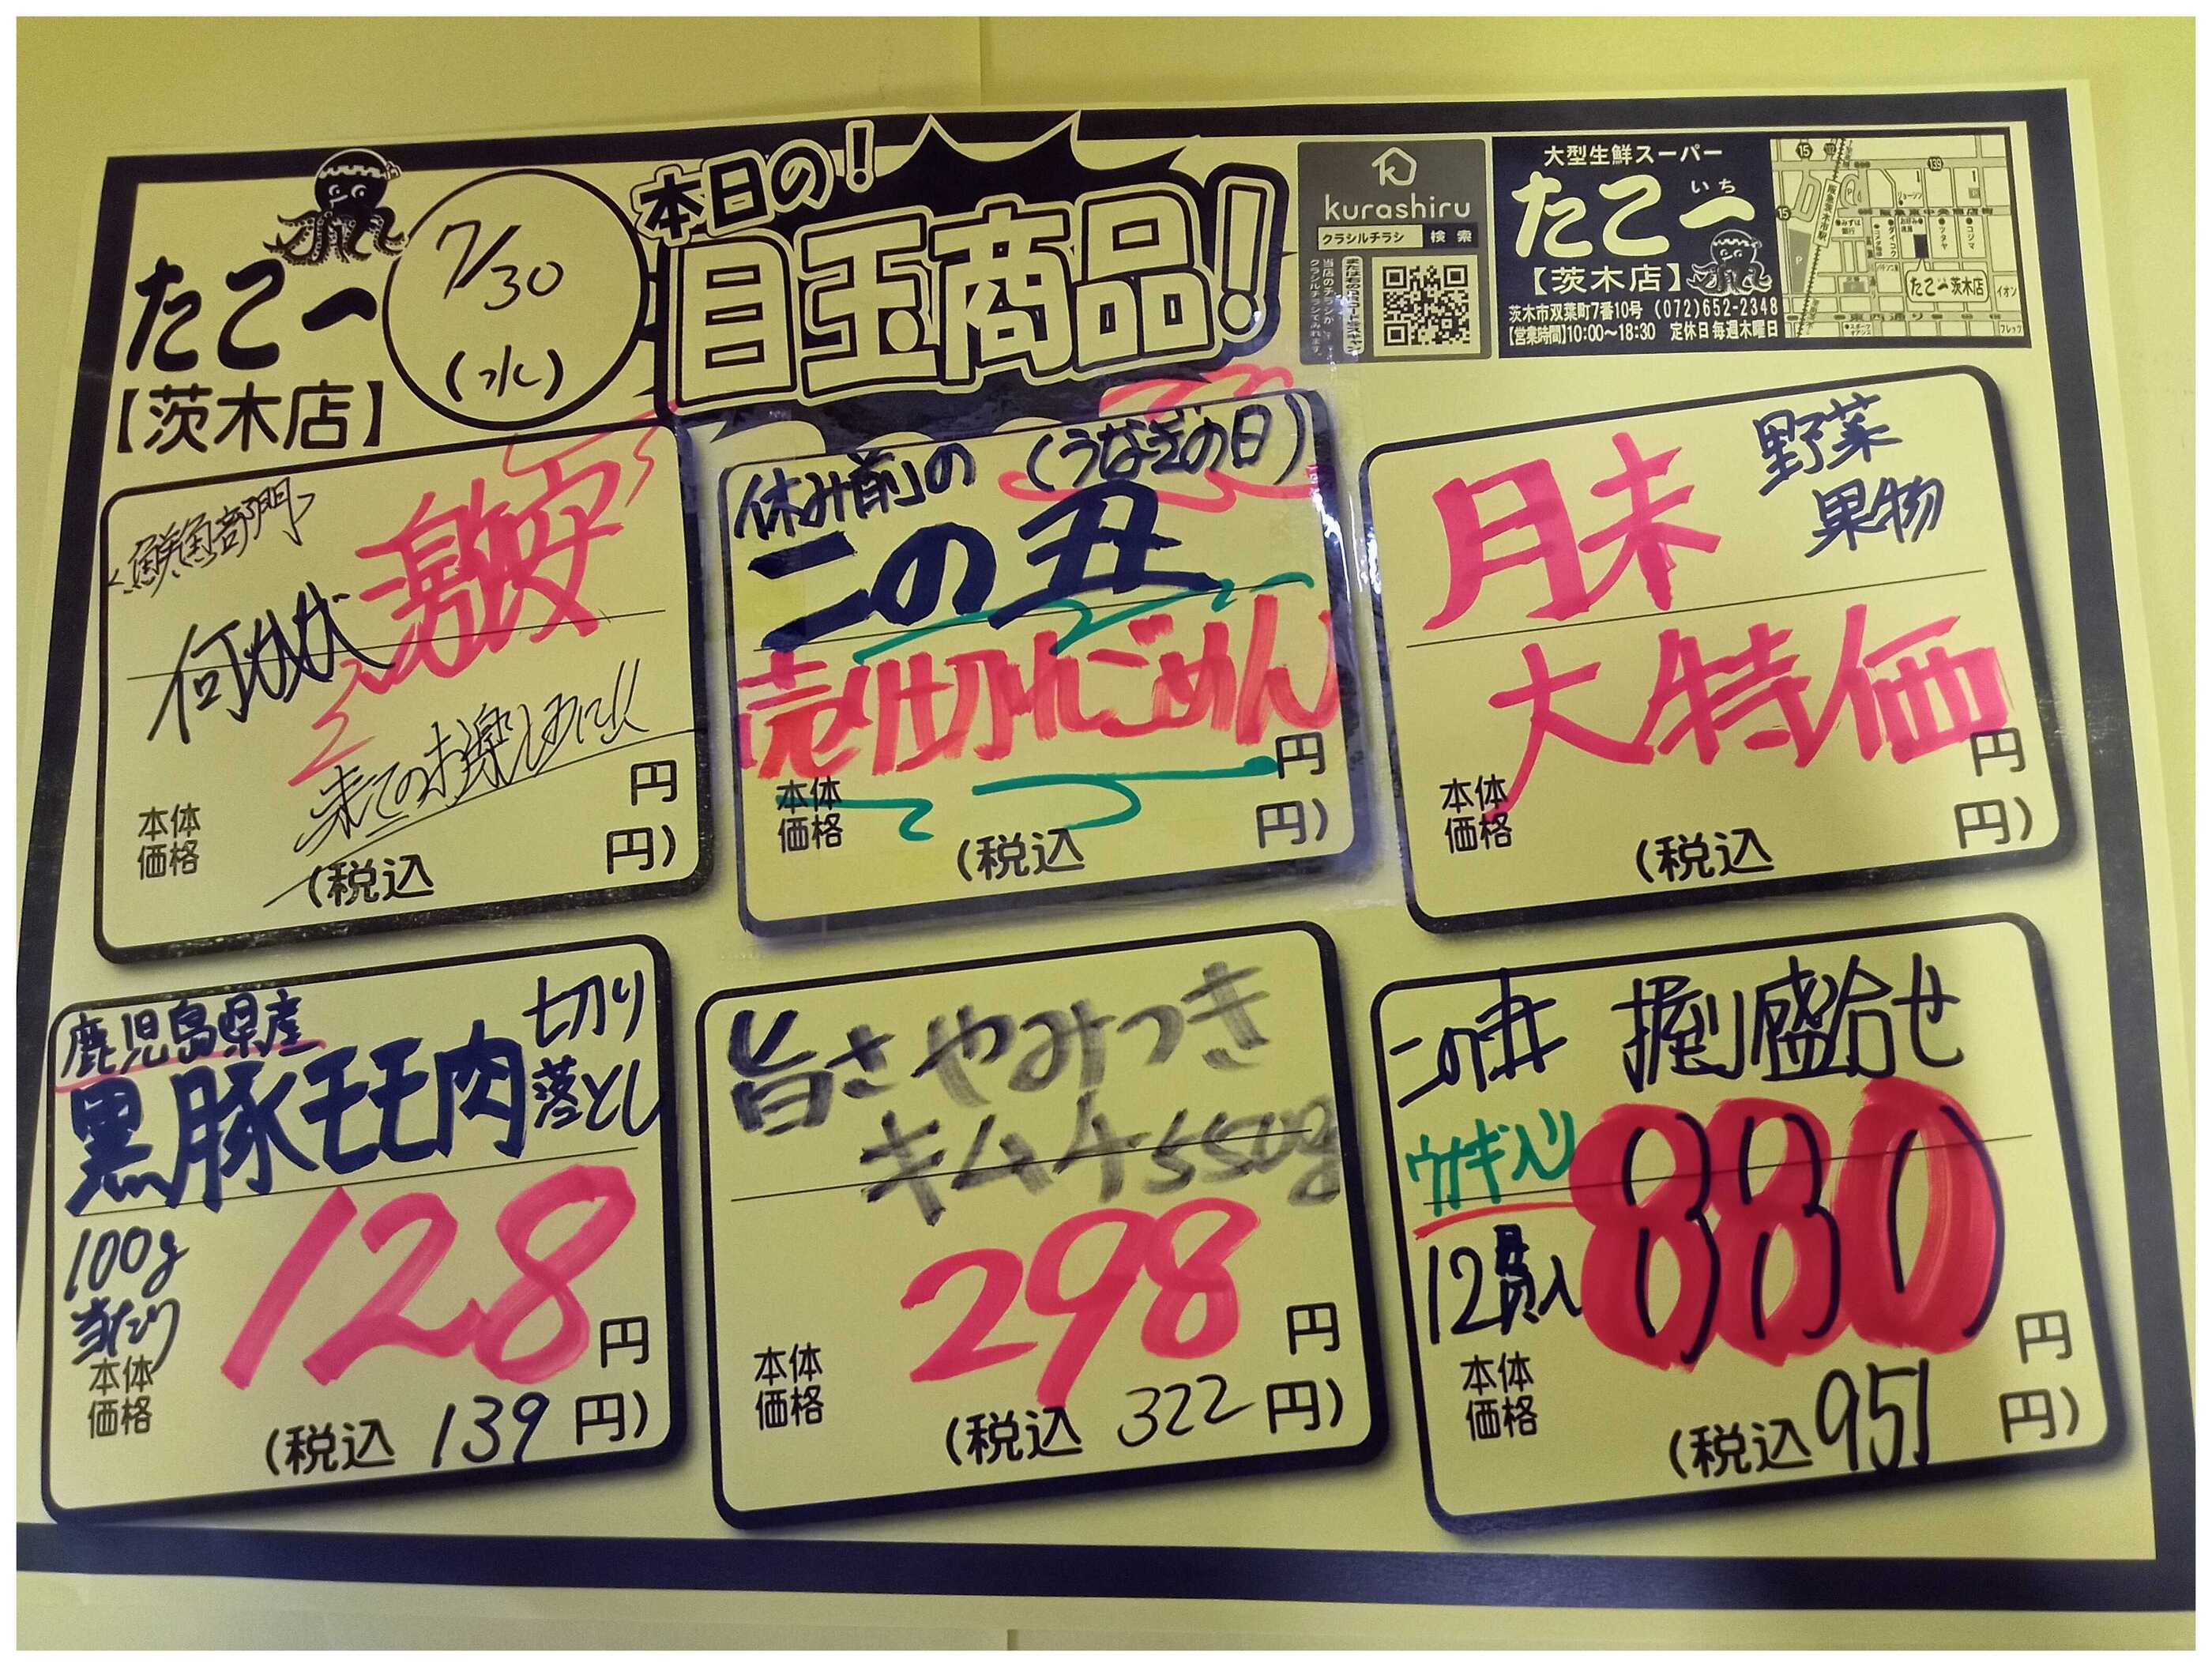 たこ一
【茨木店】
7/30
(水)
本日の!
目玉商品!
kurashiru
クラシルチラシ 検索
大型生鮮スーパー
たこ一
いち
【茨木店】
茨木市双葉町7番10号 (072)652-2348
【営業時間】10:00〜18:30 定休日 毎週木曜日
たこ一茨木店
イオン
<鮮魚部門>
何かが
激安
来てのお楽しみに!!
本体価格
円
(税込 円)
休み前の (うなぎの日)
二の丑
売り切れごめん
本体価格
円
(税込 円)
月末
野菜
果物
大特価
本体価格
円
(税込 円)
鹿児島県産
黒豚モモ肉
切り
落とし
100g
当たり
128円
本体価格
(税込 139円)
旨さやみつき
キムチ550g
298円
本体価格
(税込 322円)
二の丑 握り盛合せ
ウナギ入り
12貫入
880円
本体価格
(税込 951円)